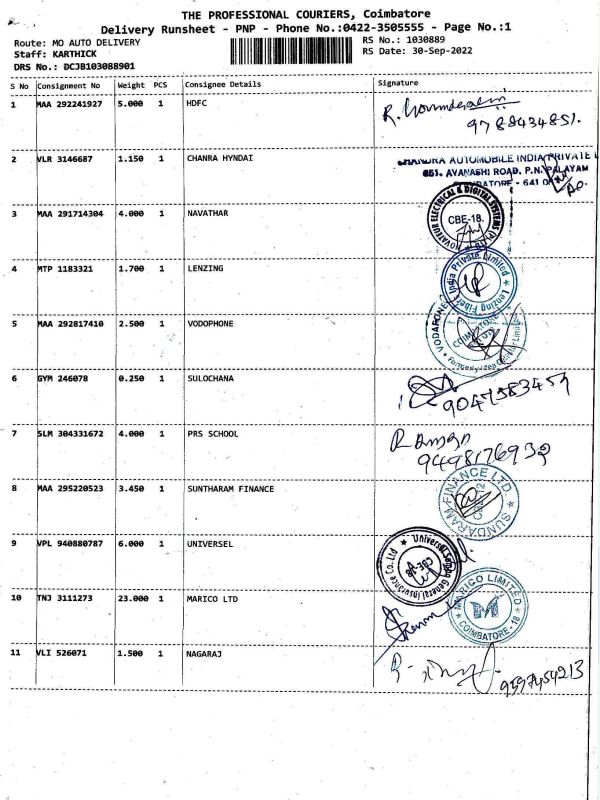 THE PROFESSIONAL COURIERS, Coimbatore
Delivery Runsheet - PNP - Phone No.:0422-3505555 - Page No.:1
Route: MO AUTO DELIVERY RS No.: 1030889
Staff: KARTHICK RS Date: 30-Sep-2022
DRS No.: DCJB103088901
S No Consignment No Weight PCS Consignee Details Signature
1 MAA 292241927 5.000 1 HDFC
2 VLR 3146687 1.150 1 CHANRA HYNDAI
CHANDRA AUTOMOBILE INDIA PRIVATE
651. AVANASHI ROAD, P.N. PALAYAM
3 MAA 291714304 4.000 1 NAVATHAR
NOVATEUR ELECTRICAL & DIGITAL SYSTEMS
CBE-18.
4 MTP 1183321 1.700 1 LENZING
Lenzing Fibers India Private Limited
5 MAA 292817410 2.500 1 VODOPHONE
VODAFONE
6 GYM 246078 0.250 1 SULOCHANA
7 SLM 304331672 4.000 1 PRS SCHOOL
Raman
8 MAA 295220523 3.450 1 SUNTHARAM FINANCE
SUNDARAM FINANCE LTD.
9 VPL 940880787 6.000 1 UNIVERSEL
Universal Sompo General Insurance Co. Ltd
CBE-18
10 TNJ 3111273 23.000 1 MARICO LTD
MARICO LIMITED
COIMBATORE - 18
11 VLI 526071 1.500 1 NAGARAJ
9597454213